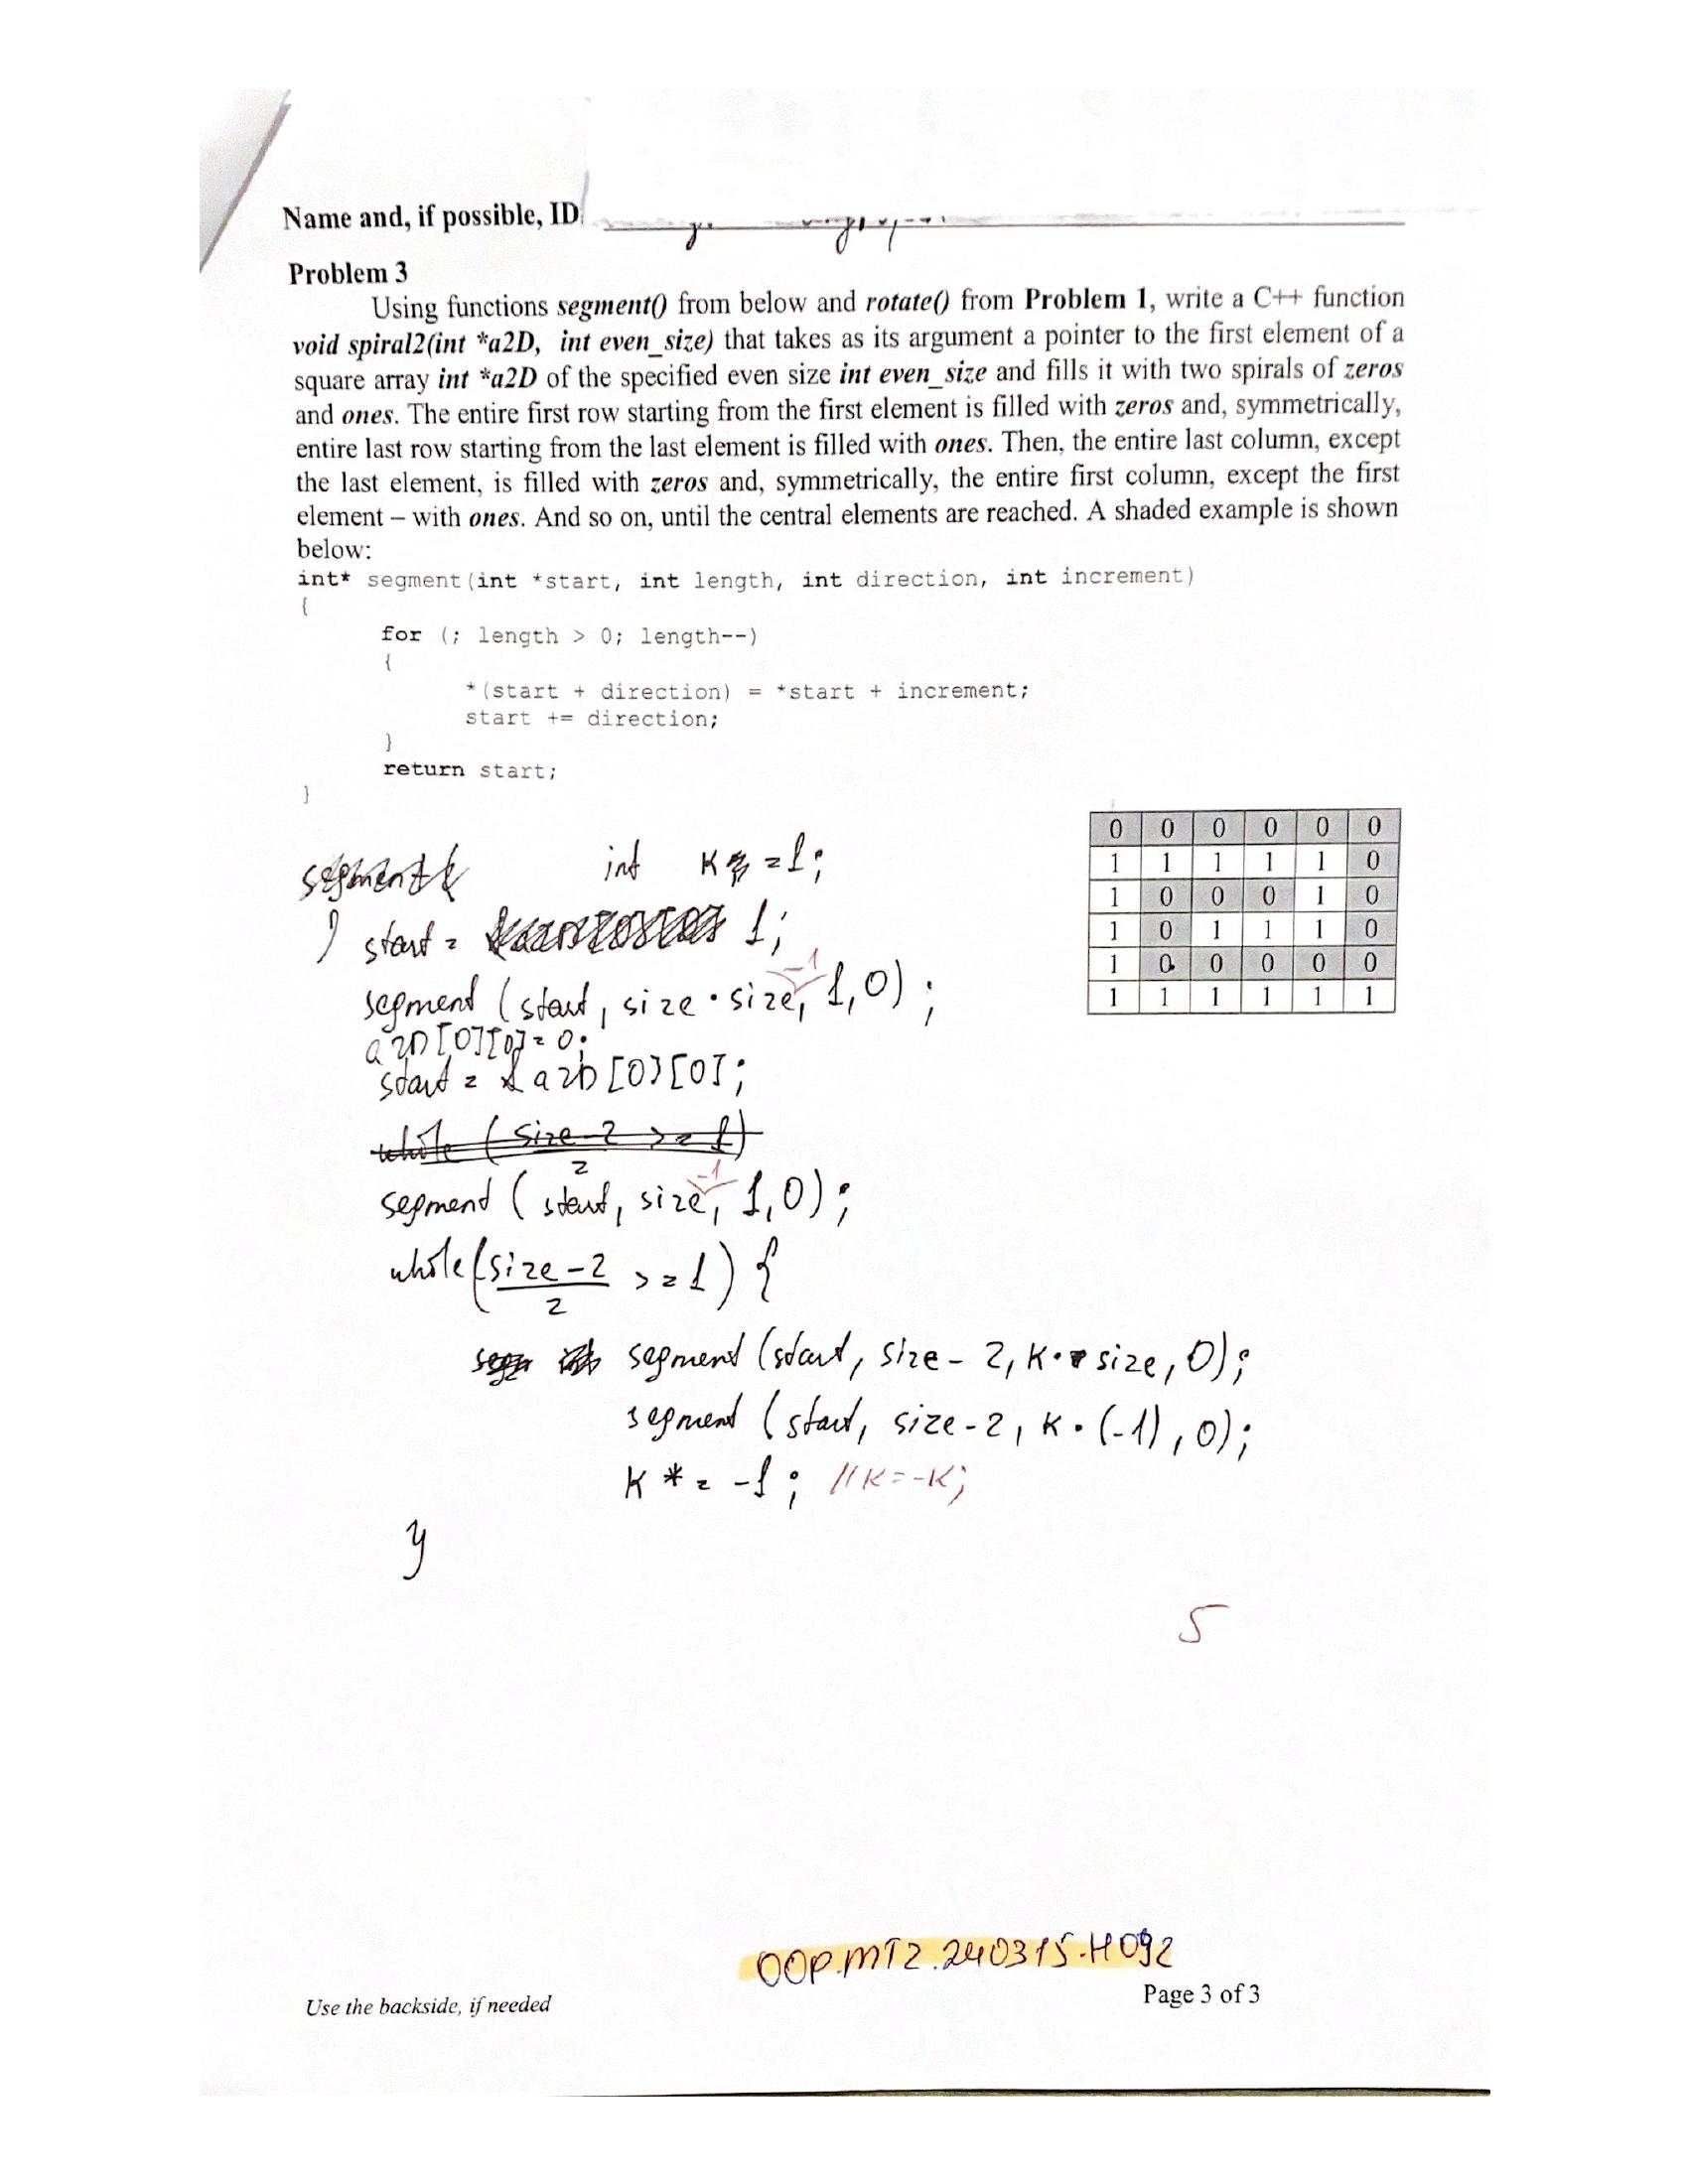 Name and, if possible, ID
Problem 3
Using functions segment() from below and rotate() from Problem 1, write a C++ function
void spiral2(int *a2D, int even_size) that takes as its argument a pointer to the first element of a
square array int *a2D of the specified even size int even_size and fills it with two spirals of zeros
and ones. The entire first row starting from the first element is filled with zeros and, symmetrically,
entire last row starting from the last element is filled with ones. Then, the entire last column, except
the last element, is filled with zeros and, symmetrically, the entire first column, except the first
element – with ones. And so on, until the central elements are reached. A shaded example is shown
below:
int* segment(int *start, int length, int direction, int increment)
{
for (; length > 0; length--)
{
*(start + direction) = *start + increment;
start += direction;
}
return start;
}
0 0 0 0 0 0
1 1 1 1 1 0
1 0 0 0 1 0
1 0 1 1 1 0
1 0 0 0 0 0
1 1 1 1 1 1
int k = 1;
start = 1;
segment (start, size · size, -1 1, 0);
a2D[0][0] = 0;
start = &a2D[0][0];
while (size-2 >= 1)
2
segment (start, size, -1 1, 0);
while (size-2 >= 1) {
2
segment (start, size - 2, k · size, 0);
segment (start, size - 2, k · (-1), 0);
k *= -1; //k=-k;
}
5
OOP.MT2.240315-H092
Use the backside, if needed
Page 3 of 3